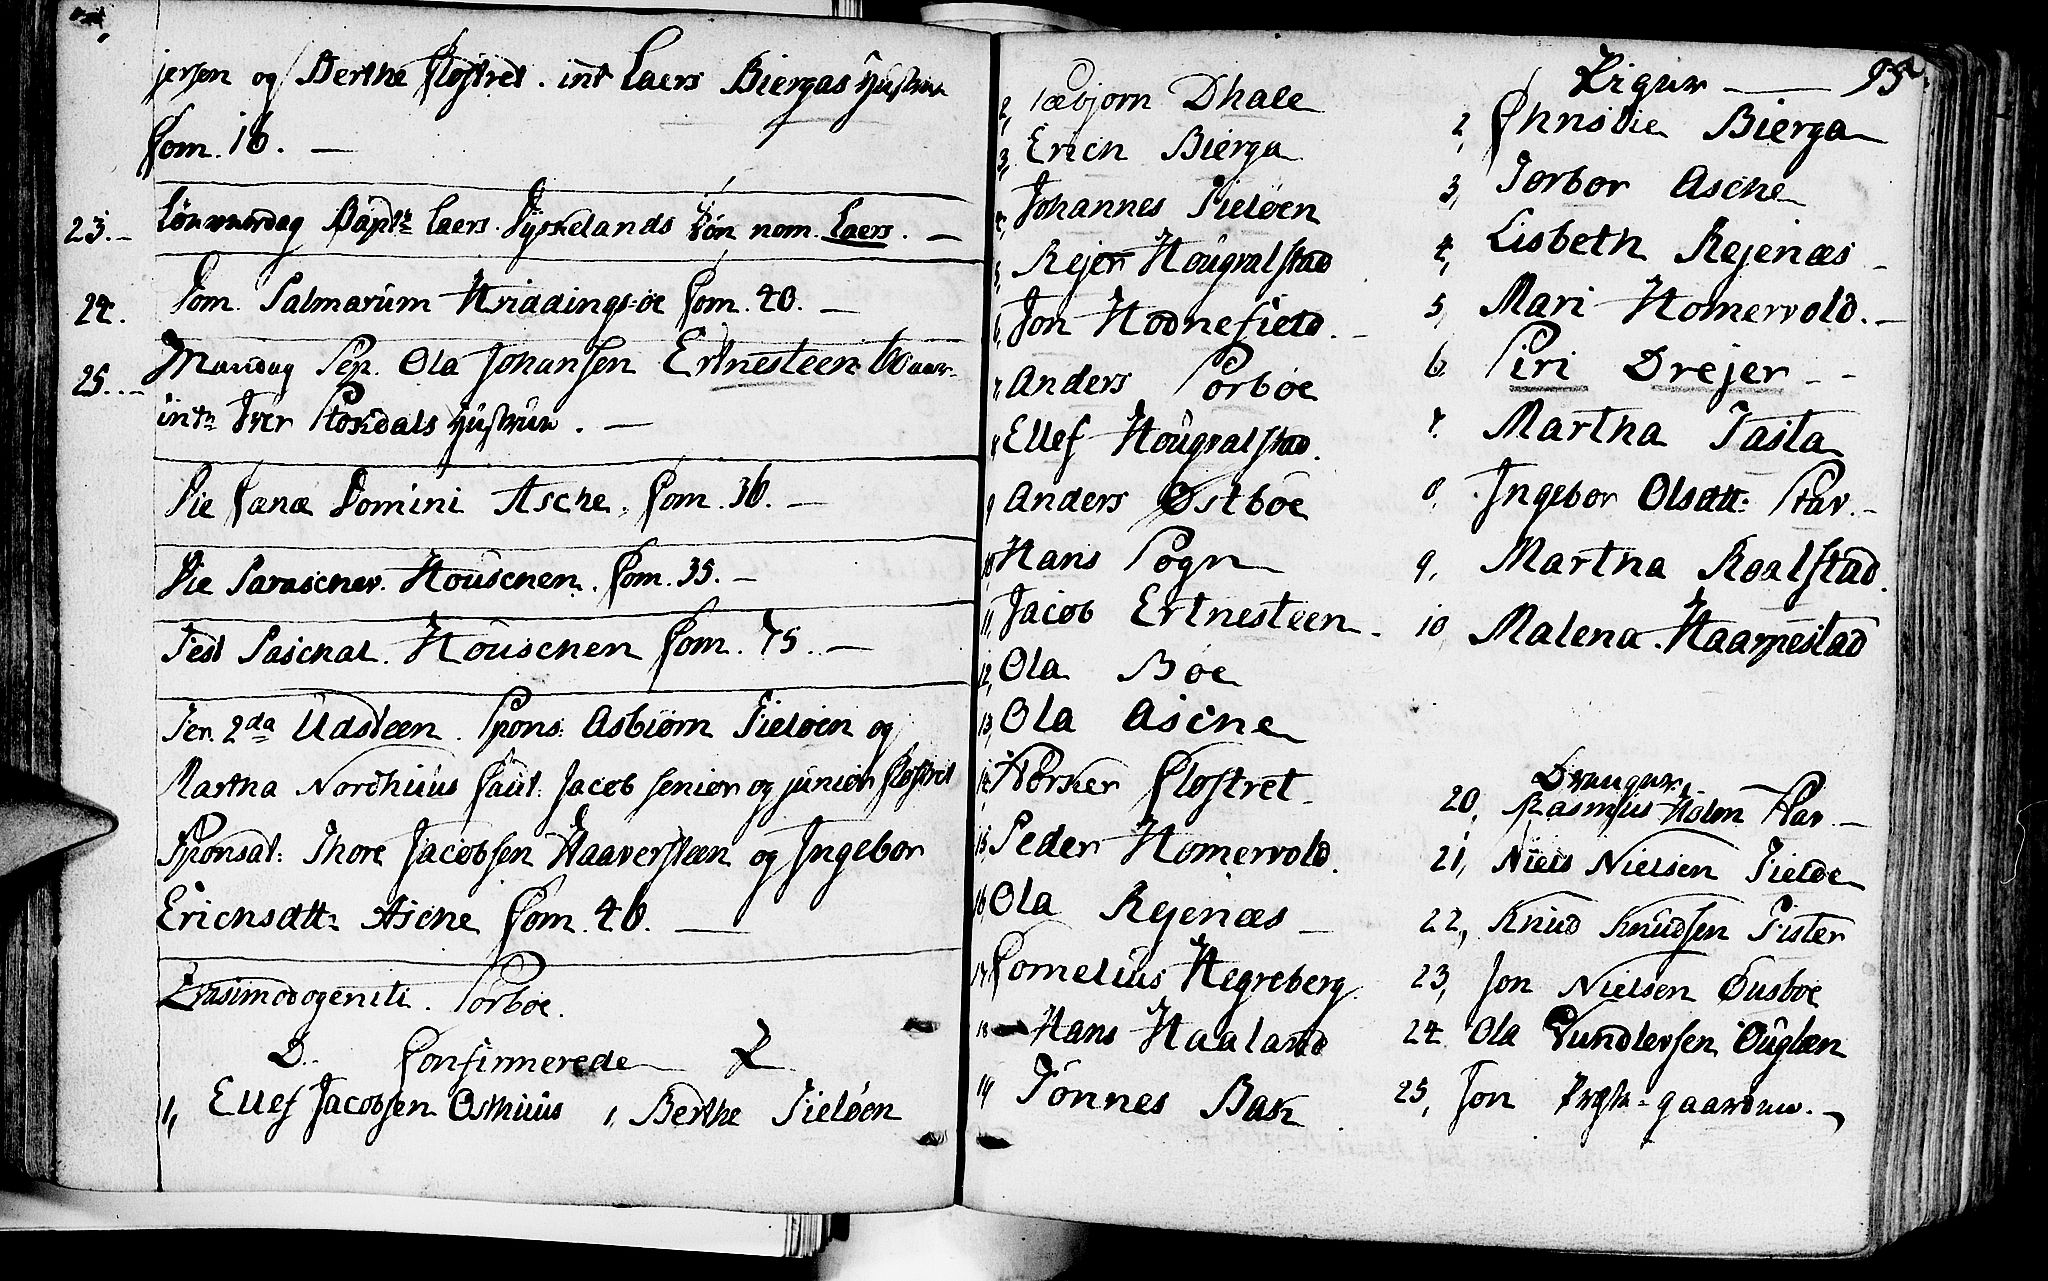 jersen og Berthe Clostret. int Laers Biergas hustrue
Com. 16. —
23. Lönverdag Bapt: Laers Tyskelands Sön nom. Laers. —
24. Dom. Palmarum Hvidingsöe Com. 40. —
25. Mandag Sep. Ola Johansen Ertnesteen
int: Iver Stokdals hustrue. —
Die Cænæ Domini Asche. Com. 36. —
Die Paraschev. Houschen. Com. 35. —
Fest Paschal. Houschen Com. 75. —
Fer. 2da Udsteen. Spons: Asbiörn Fielöen og
Martha Nordhuus Caut: Jacob senior og junior Clostret
Sponsat: Thore Jacobsen Haaversteen og Ingebor
Erichsdtt: Asche Com. 46. —
Qvasimodogeniti. Sörböe.
D. Confirmerede P
1, Ellef Jacobsen Osthuus 1, Berthe Fielöen
95
2, Tæbjorn Dhale
3, Erich Bierga
4, Johannes Fielöen
5, Rejer Hougvalstad
6, Jon Hodnefield. —
7, Anders Sörböe
8, Ellef Hougvalstad.
9, Anders Östböe
10, Hans Sogn
11, Jacob Ertnesteen
12, Ola Böe
13, Ola Asche
14, Clostret
15, Peder Homervold.
16, Ola Rejenæs —
17, Cornelius Hegreberg.
18, Hans Haaland
19, Tönnes Bak
Pigur —
2, Christie Bierga
3, Torbor Asche
4, Lisbeth Rejenæs —
5, Mari Homervold. —
6. Siri Drejer - -
7. Martha Tasta
8, Ingebor Olsdtt: Stav. -
9, Martha Roalstad.
10, Malena Haarnestad
Drengur.
20, Rasmus Holm Stav. —
21, Niels Nielsen Fielde
22, Knud Knudsen Fister
23, Jon Nielsen Dusböe
24. Ola Gundersen Ouglæn
25, Jon